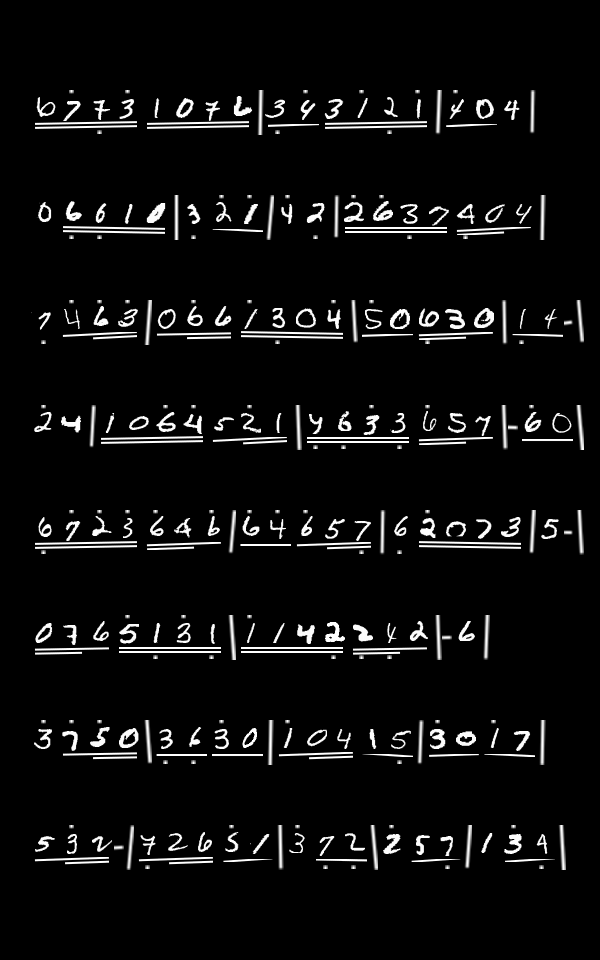 6773 1076|34 3121|404
06610|3 21|42|2637 404
7 463|066 1304|50 630|14-|
24|1064 521|4633 657|-60|
6723 646|64 657|6 2073|5-|
076 5131|1142 242|-6|
3750|36 30|104 15|30 17|
532-|726 51|372|257|134|